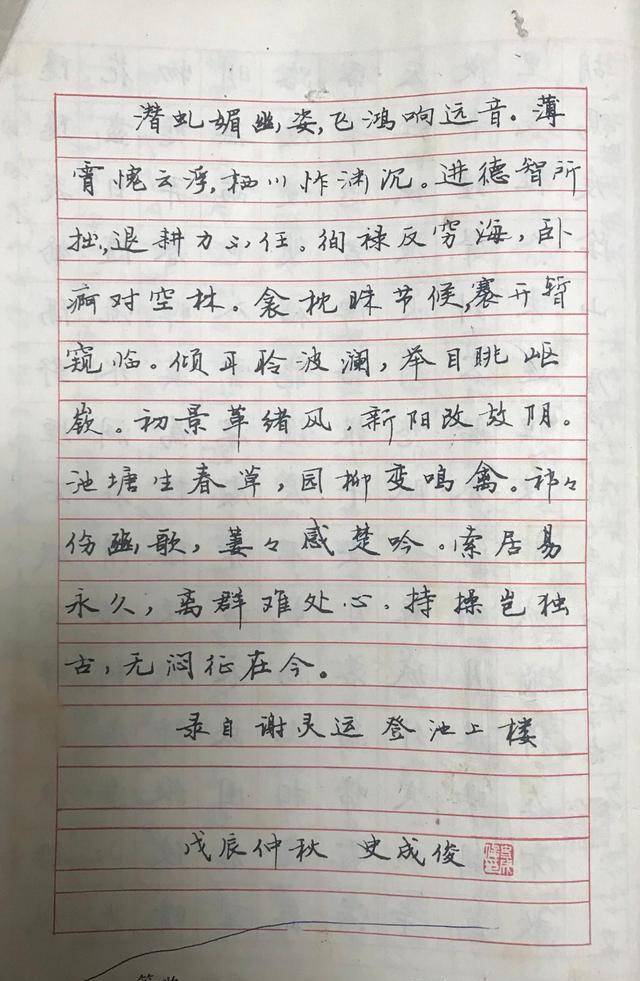 潜虬媚幽姿,飞鸿响远音。薄
霄愧云浮,栖川怍渊沉。进德智所
拙,退耕力不任。徇禄反穷海,卧
疴对空林。衾枕昧节候,褰开暂
窥临。倾耳聆波澜,举目眺岖
嵚。初景革绪风,新阳改故阴。
池塘生春草,园柳变鸣禽。祁々
伤豳歌,萋々感楚吟。索居易
永久,离群难处心。持操岂独
古,无闷征在今。
录自谢灵运登池上楼
戊辰仲秋 史成俊